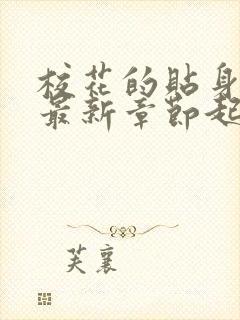 校花的贴身
最新章节起
芙襄